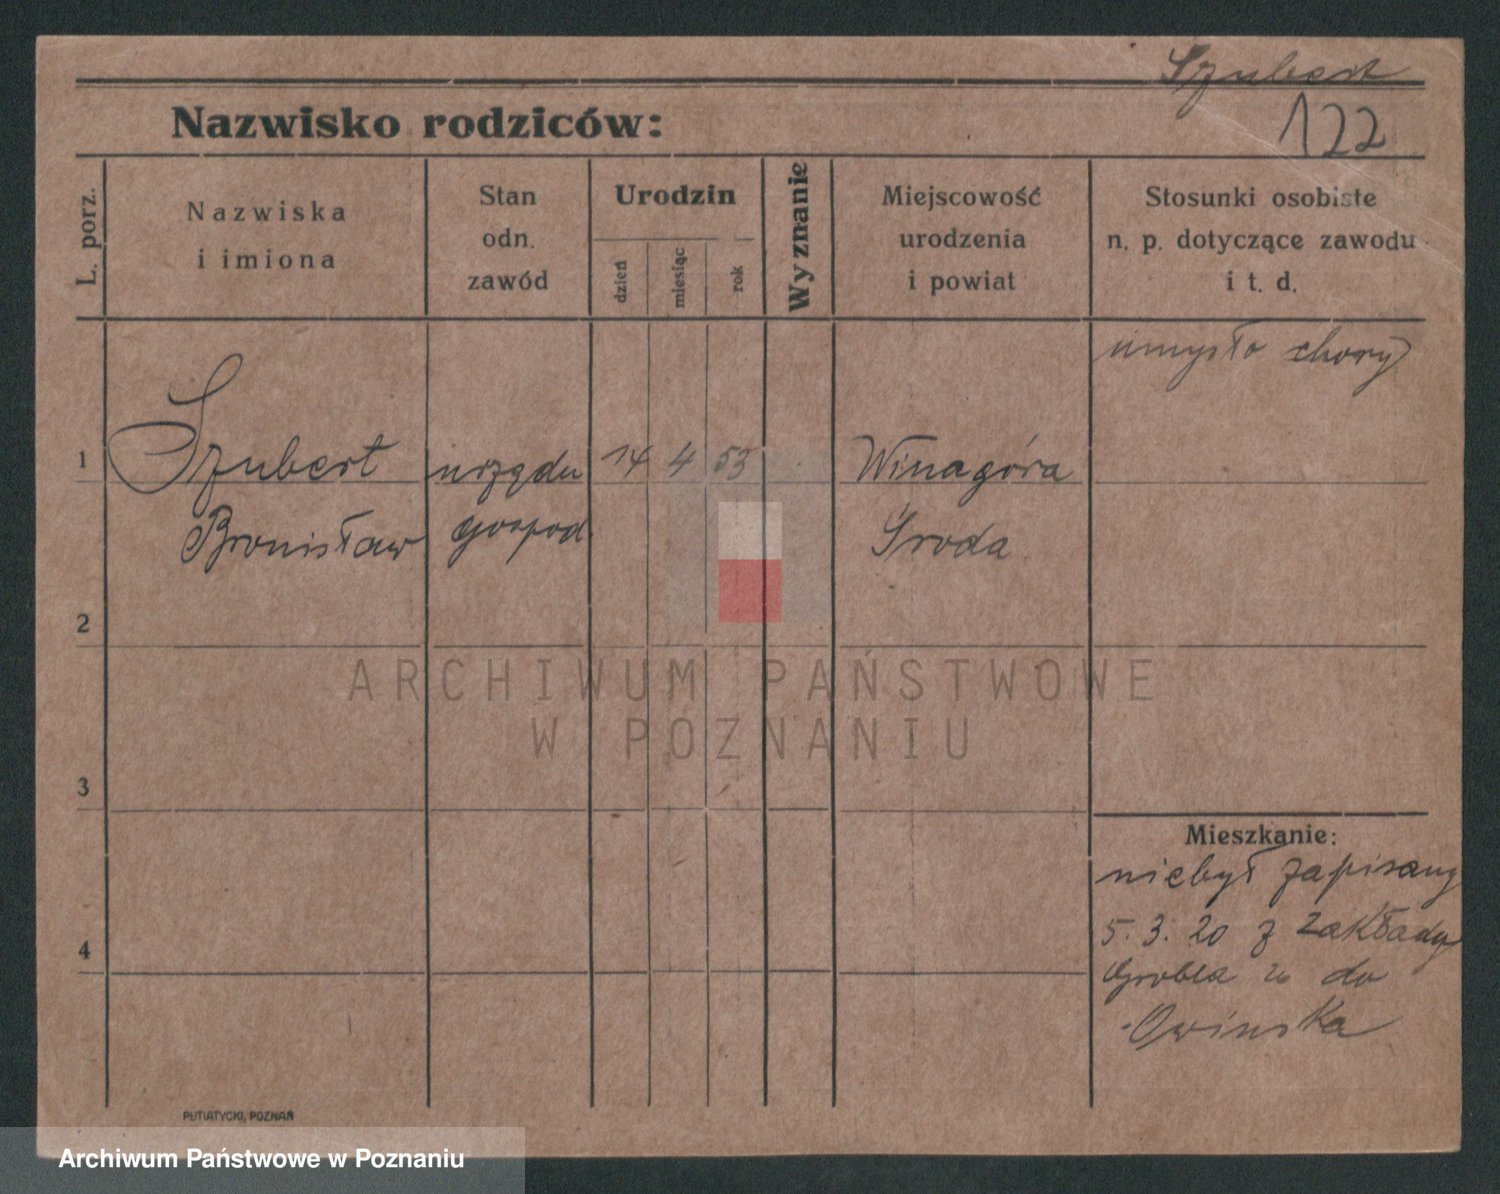 Szubert
Nazwisko rodziców:
122
L. porz.
Nazwiska
i imiona
Stan
odn.
zawód
Urodzin
dzień
miesiąc
rok
Wyznanie
Miejscowość
urodzenia
i powiat
Stosunki osobiste
n. p. dotyczące zawodu
i t. d.
umysło chory
1
Szubert
urzędu
14 4 53
Winagóra
Bronisław
gospod.
Środa
2
ARCHIWUM PAŃSTWOWE
W POZNANIU
3
Mieszkanie:
niebył zapisany
4
5. 3. 20 z zakłady
Grobla do
Owinska
PUTIATYCKI, POZNAŃ
Archiwum Państwowe w Poznaniu